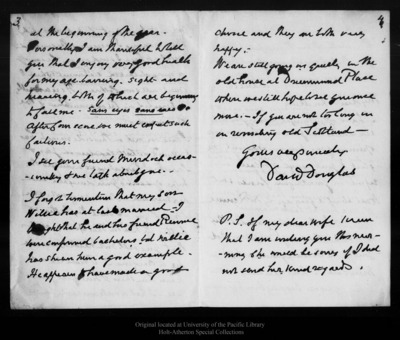 3
at the beginning of the year.
Personally I am thankful to tell
you that I enjoy very good health
for my age, barring sight and
hearing both of which are beginning
to fail me. Sans eyes sans ears
After four score we must expect such
failures.
I see your friend Murdoch occas-
ionally & we talk about you.
I forgot to mention that my son
Willie has at last married. I
thought that he and
were confirmed bachelors, but Willie
has shown him a good example.
He appears to have made a good
4
choice and they are both very
happy.
We are still going on quietly in the
old house at Drummond Place
where we still hope to see you once
more. If you are not too long in
in revisiting old Scotland
Yours very sincerely
David Douglas
P.S. If my dear wife knew
that I am writing you this morn-
ing she would be sorry if I did
not send her kind regards.
Original located at University of the Pacific Library
Holt-Atherton Special Collections